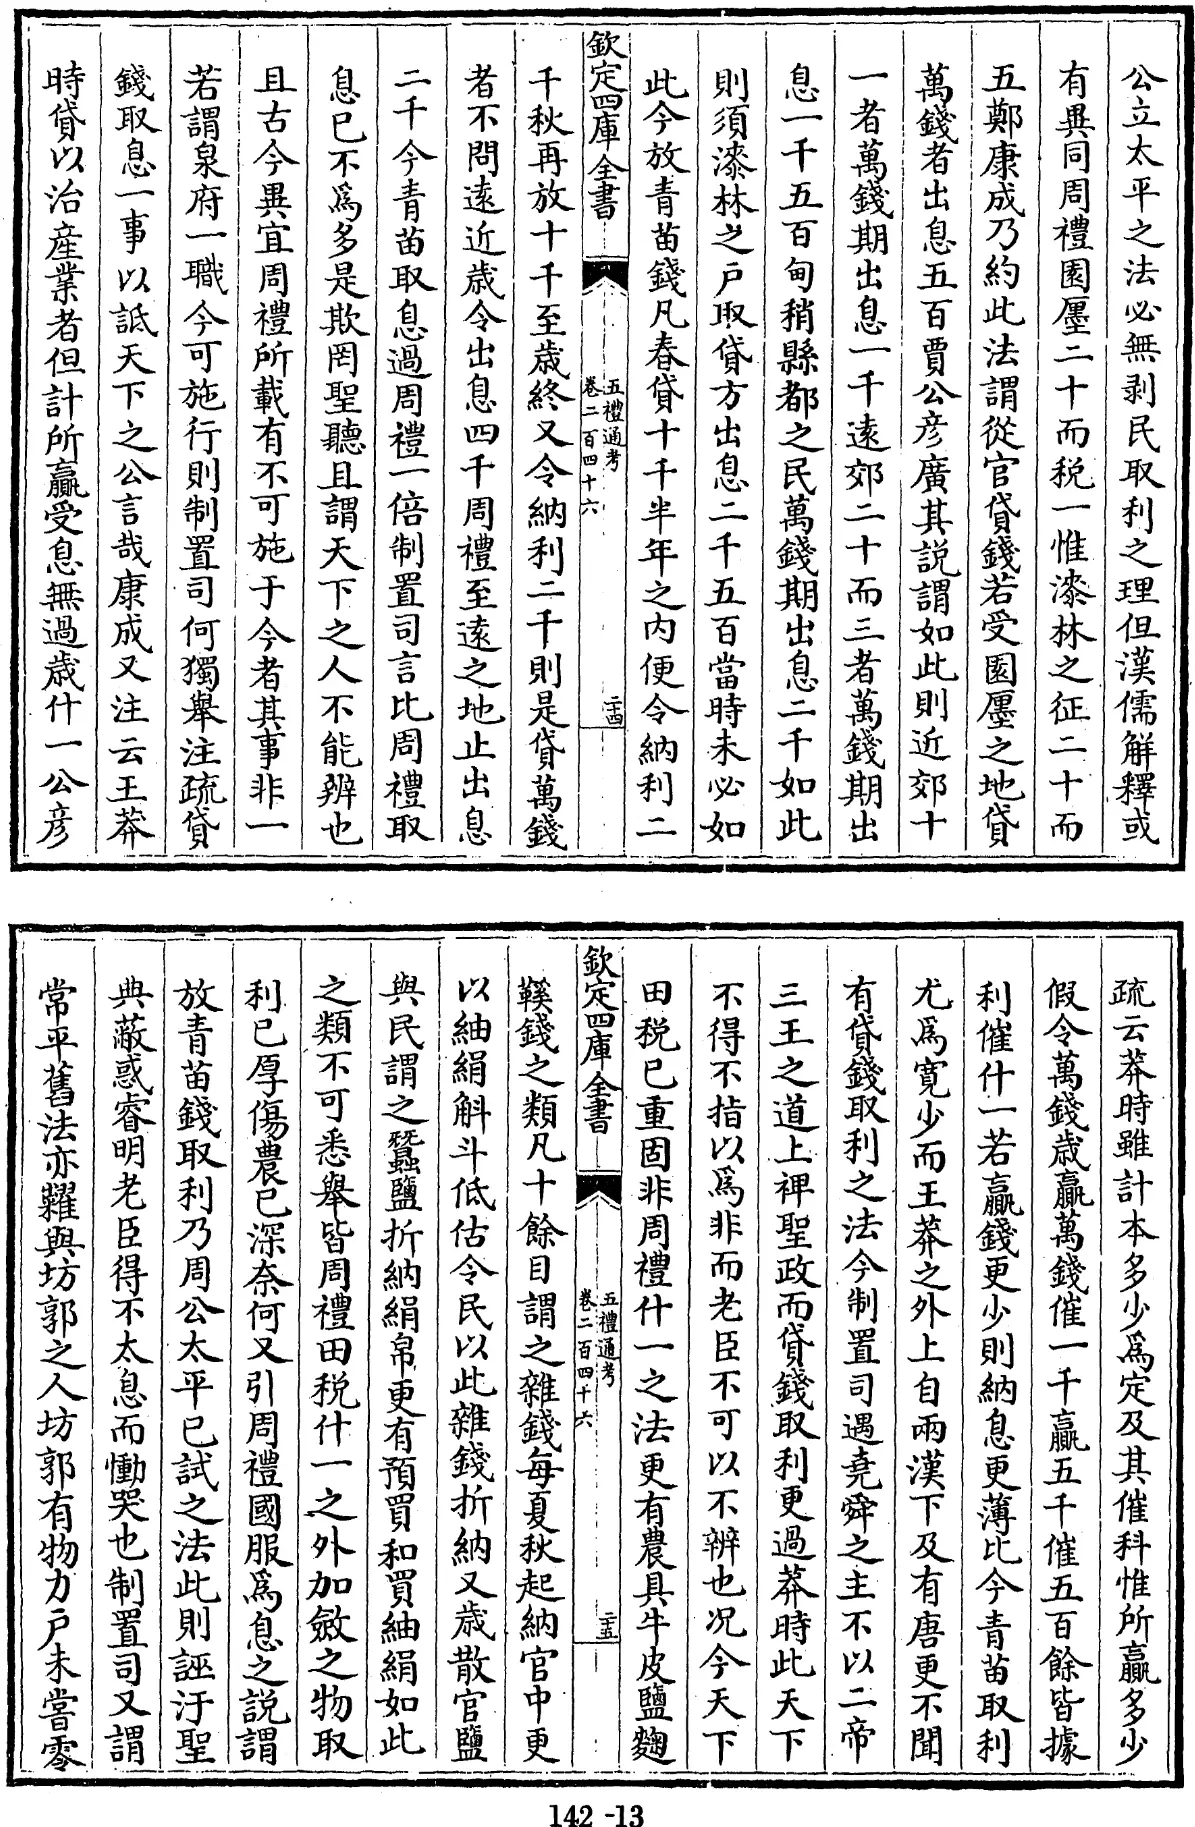 公立太平之法必無剥民取利之理但漢儒解釋或
有異同周禮園廛二十而税一惟漆林之征二十而
五鄭康成乃約此法謂從官貸錢若受園廛之地貸
萬錢者出息五百賈公彦廣其説謂如此則近郊十
一者萬錢期出息一千遠郊二十而三者萬錢期出
息一千五百甸稍縣都之民萬錢期出息二千如此
則須漆林之戸取貸方出息二千五百當時未必如
此今放青苗錢凡春貸十千半年之内便令納利二
欽定四庫全書
五禮通考
卷二百四十六
二十四
千秋再放十千至歳終又令納利二千則是貸萬錢
者不問遠近歳令出息四千周禮至遠之地止出息
二千今青苗取息過周禮一倍制置司言比周禮取
息已不爲多是欺罔聖聽且謂天下之人不能辨也
且古今異宜周禮所載有不可施于今者其事非一
若謂泉府一職今可施行則制置司何獨舉注疏貸
錢取息一事以詆天下之公言哉康成又注云王莽
時貸以治産業者但計所贏受息無過歳什一公彦
疏云莽時雖計本多少爲定及其催科惟所贏多少
假令萬錢歳贏萬錢催一千贏五千催五百餘皆據
利催什一若贏錢更少則納息更薄比今青苗取利
尤爲寛少而王莽之外上自兩漢下及有唐更不聞
有貸錢取利之法今制置司遇堯舜之主不以二帝
三王之道上裨聖政而貸錢取利更過莽時此天下
不得不指以爲非而老臣不可以不辨也况今天下
田税已重固非周禮什一之法更有農具牛皮鹽麴
欽定四庫全書
五禮通考
卷二百四十六
二十五
鞵錢之類凡十餘目謂之雜錢每夏秋起納官中更
以紬絹斛斗低估令民以此雜錢折納又歳散官鹽
與民謂之蠶鹽折納絹帛更有預買和買紬絹如此
之類不可悉舉皆周禮田税什一之外加斂之物取
利已厚傷農已深奈何又引周禮國服爲息之説謂
放青苗錢取利乃周公太平已試之法此則誣汙聖
典蔽惑睿明老臣得不太息而慟哭也制置司又謂
常平舊法亦糶與坊郭之人坊郭有物力戸未嘗零
142-13